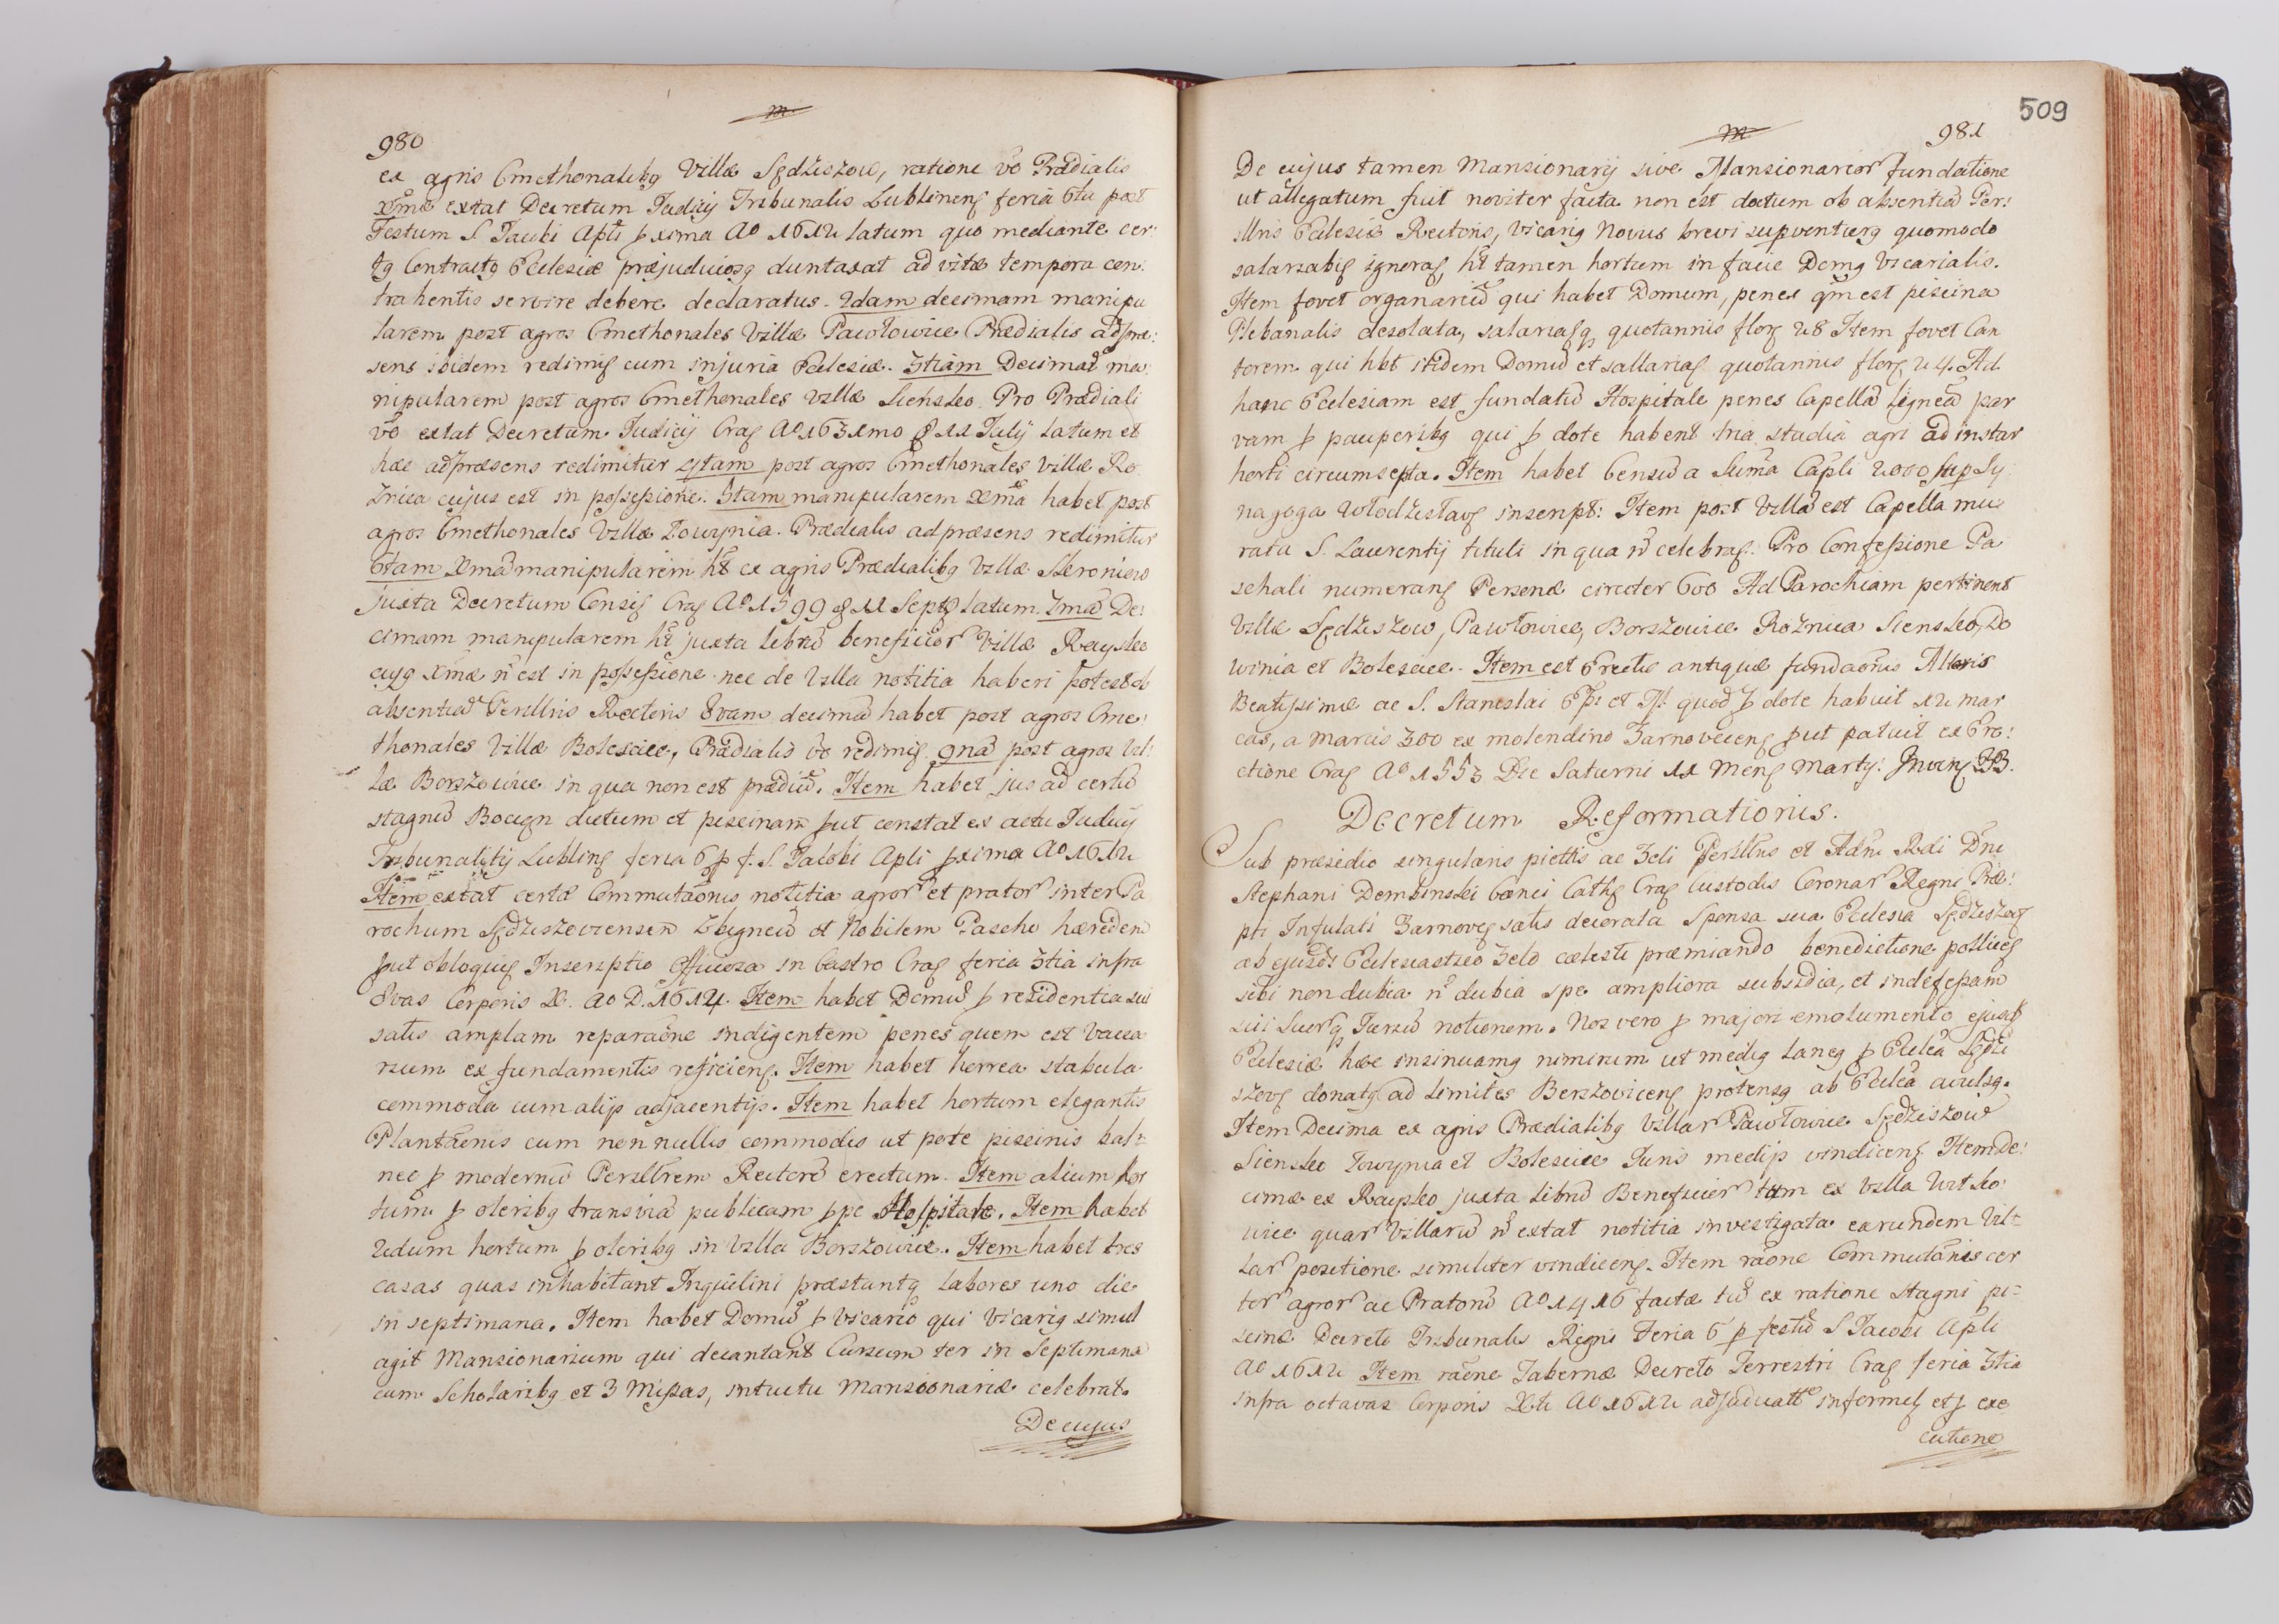 m
980
ex agris Cmethonalibq Villæ Sędziszow, ratione vo Prædialis
xmæ extat Decretum Judicij Tribunalis Lublinenſ feria 6ta post
Festum S Jacobi Apli pxima Ao 1612 latum quo mediante cer
tq Contractq Ecclesiæ præjudiciosq duntaxat ad vitæ tempora con:
trahentis servire debere declaratus. 2dam decimam manipu
larem post agros Cmethonales Villæ Pawłowice Prædialis ad præ:
sens ibidem redimiſ cum injuria Ecclesiæ. 3tiam Decimam ma:
nipularem post agros Cmethonales Villæ Siensko. Pro Prædiali
vo extat Decretum Judicij Craſ Ao 1631mo 8 11 Julij latum et
hæc ad præsens redimitur 4tam post agros Cmethonales Villæ Ro
źnica cujus est in possessione. 5tam manipularem Xma habet post
agros Cmethonales Villæ Łowynia. Prædialis ad præsens redimitur
6tam Xmā manipularem ht ex agris Prædialibq Villæ Skroniow
juxta Decretum Consiſ Craſ Ao 1599 8 11 Septb latum. 7mā De:
cimam manipularem ht juxta librū beneficior Villæ Raysko
cujq Xmæ n est in possessione nec de Villa notitia haberi potest ob
absentiā Perillris Rectoris 8vam decimā habet post agros Cme:
thonales Villæ Bolescice, Prædialis vo redimiſ 9nā post agros Vil:
læ Borszowice in qua non est prædiū. Item habet jus ad certū
stagnū Bocięn dictum et piscinam put constat ex actu Judicij
Tribunalitij Lublinſ feria 6 p f. S. Jacobi Apli pxima Ao 1612
Item extat certæ Commutaōnis notitia agror et prator inter Pa
rochum Sędziszoviensem Zbigneū et Nobilem Pascho hæredem
put obloquiſ Inscriptio Officiosa in Castro Craſ feria 3tia infra
8vas Corporis X. Ao D. 1614. Item habet Domū p residentia sui
satis amplam reparaōne indigentem penes quem est Vacca
rium ex fundamentis reficienſ. Item habet horrea stabula
commoda cum alijs adjacentijs. Item habet hortum elegantis
Plantaōnis cum nonnullis commodis ut pote piscinis bal:
neo p modernū Perillrem Rectorē erectum. Item alium hor
tum p oleribq trans viā publicam ppe Hospitale. Item habet
2dum hortum p oleribq in Villa Borszowice. Item habet tres
casas quas inhabitant Inquilini præstantq labores uno die
in septimana. Item habet Domū p Vicario qui Vicariq simul
agit Mansionarium qui decantant Cursum ter in Septimana
cum Scholaribq et 3 Missas, intuitu Mansionariæ celebrat.
De cujus
509
m
981
De cujus tamen Mansionarij sive Mansionarior fundatione
ut allegatum fuit noviter facta non est doctum ob absentiā Per:
illris Ecclesiæ Rectoris, Vicariq Novus brevi supventurq quomodo
salariabiſ ignoraſ, ht tamen hortum in facie Domq Vicarialis.
Item fovet organariū qui habet Domum, penes qm est piscina
Plebanalis desolata, salariaſq quotannis florſ 28 Item fovet Can
torem qui hbt itidem Domū et sallariaſ quotannis florſ 24. Ad
hanc Ecclesiam est fundatū Hospitale penes Capellā ligneā par
vam p pauperibq qui p dote habent tria stadia agri ad instar
horti circumsepta. Item habet Censū a Suma Capli 2000 sup Sy
nagoga Włodzisłavſ inscript: Item post Villā est Capella mu
rata S. Laurentij tituli in qua n celebraſ. Pro Confessione Pa
schali numeranſ Personæ circiter 600 Ad Parochiam pertinent
Villæ Sędziszow, Pawłowice, Borszowice Roźnica Siensko, Ło
winia et Bolescice. Item est Erectio antiquæ fundaōnis Altaris
Beatissimæ ac S. Stanislai Epi et M. quod p dote habuit 12 mar
cas, a Marcis 300 ex molendino Żarnovecenſ put patuit ex Ere:
ctione Craſ Ao 1553 Die Saturni 11 Menſ Martij.
Decretum Reformationis.
Sub præsidio singularis piettis ac Zeli Perillris et Adm Rdi Dni
Stephani Dembinski Canci Cathſ Craſ Custodis Coronar Regni Præ:
pti Infulati Żarnoveſ satis decorata Sponsa sua Ecclesia Sędziszoſ
ab ejusdē Ecclesiastico Zelo cælesti præmiando benedictione polliceſ
sibi non dubia n dubia spe ampliora subsidia, et indefessam
sui suorq Juriū notionem. Nos vero p majori emolumento ejusd
Ecclesiæ hæc insinuamq nimirum ut mediq laneq p Ecclā Sędzi
szovſ donatq ad limites Borszovicenſ protensq ab Ecclā avulsq.
Item Decima ex agris Prædialibq Villar Pawłowice Sędziszow
Siensko Łowynia et Bolescice Juris medijs vindicenſ Item De:
cimæ ex Raysko juxta librū Beneficior tum ex Villa Witko
wice quar Villarū n extat notitia investigata earundem Vil:
lar positione similiter vindicenſ. Item raōne Commutaōnis cer
tor agror ac Pratorū Ao 1416 factæ tū ex ratione Stagni pi:
scinæ Decreto Tribunalis Regni Feria 6 p festū S Jacobi Apli
Ao 1612 Item raōne Tabernæ Decreto Terrestri Craſ feria 3tia
infra octavas Corporis Xti Ao 1612 informeſ et p exe
cutione